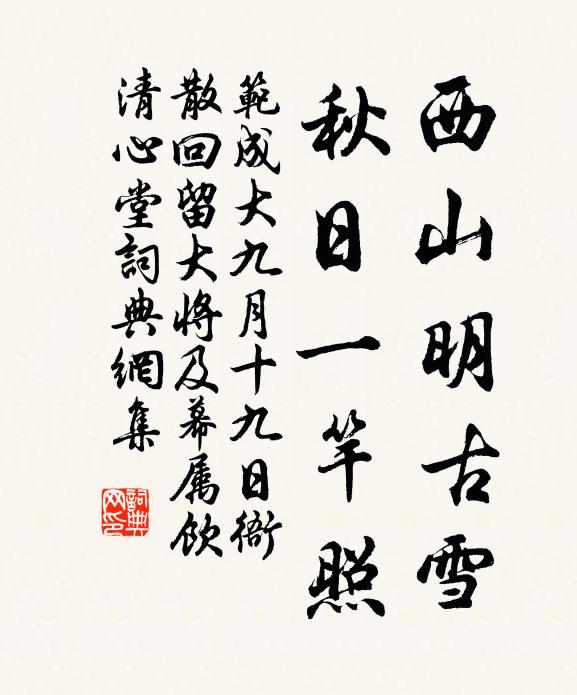 西山明古雪
秋日一竿照
範成大九月十九日衙
散回留大将及幕属飲
清心堂詞典網集
詞典
网印